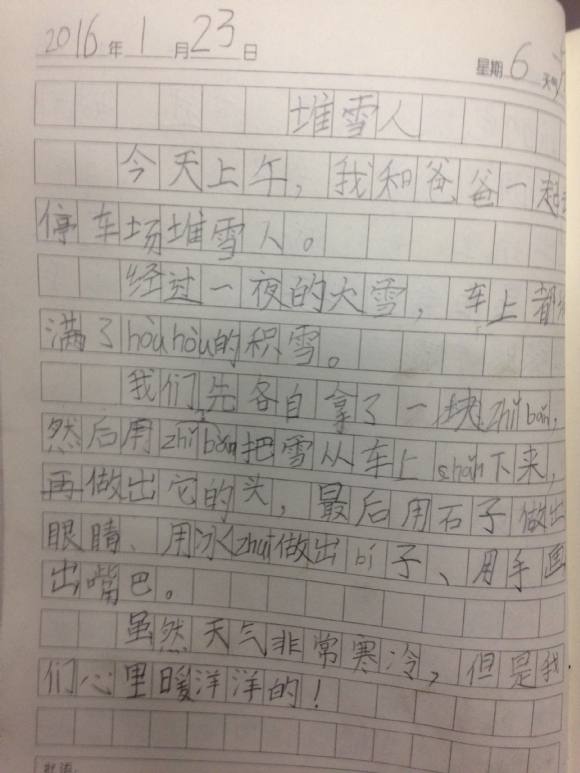 2016年1月23日 星期6 天气
堆雪人
今天上午，我和爸爸一起
停车场堆雪人。
经过一夜的大雪，车上都
满了hòuhòu的积雪。
我们先各自拿了一块zhǐbǎn，
然后用zhǐbǎn把雪从车上shǎn下来，
再做出它的头，最后用石子做出
眼睛、用冰zhuī做出bí子、用手画
出嘴巴。
虽然天气非常寒冷，但是我
们心里暖洋洋的！
批语: